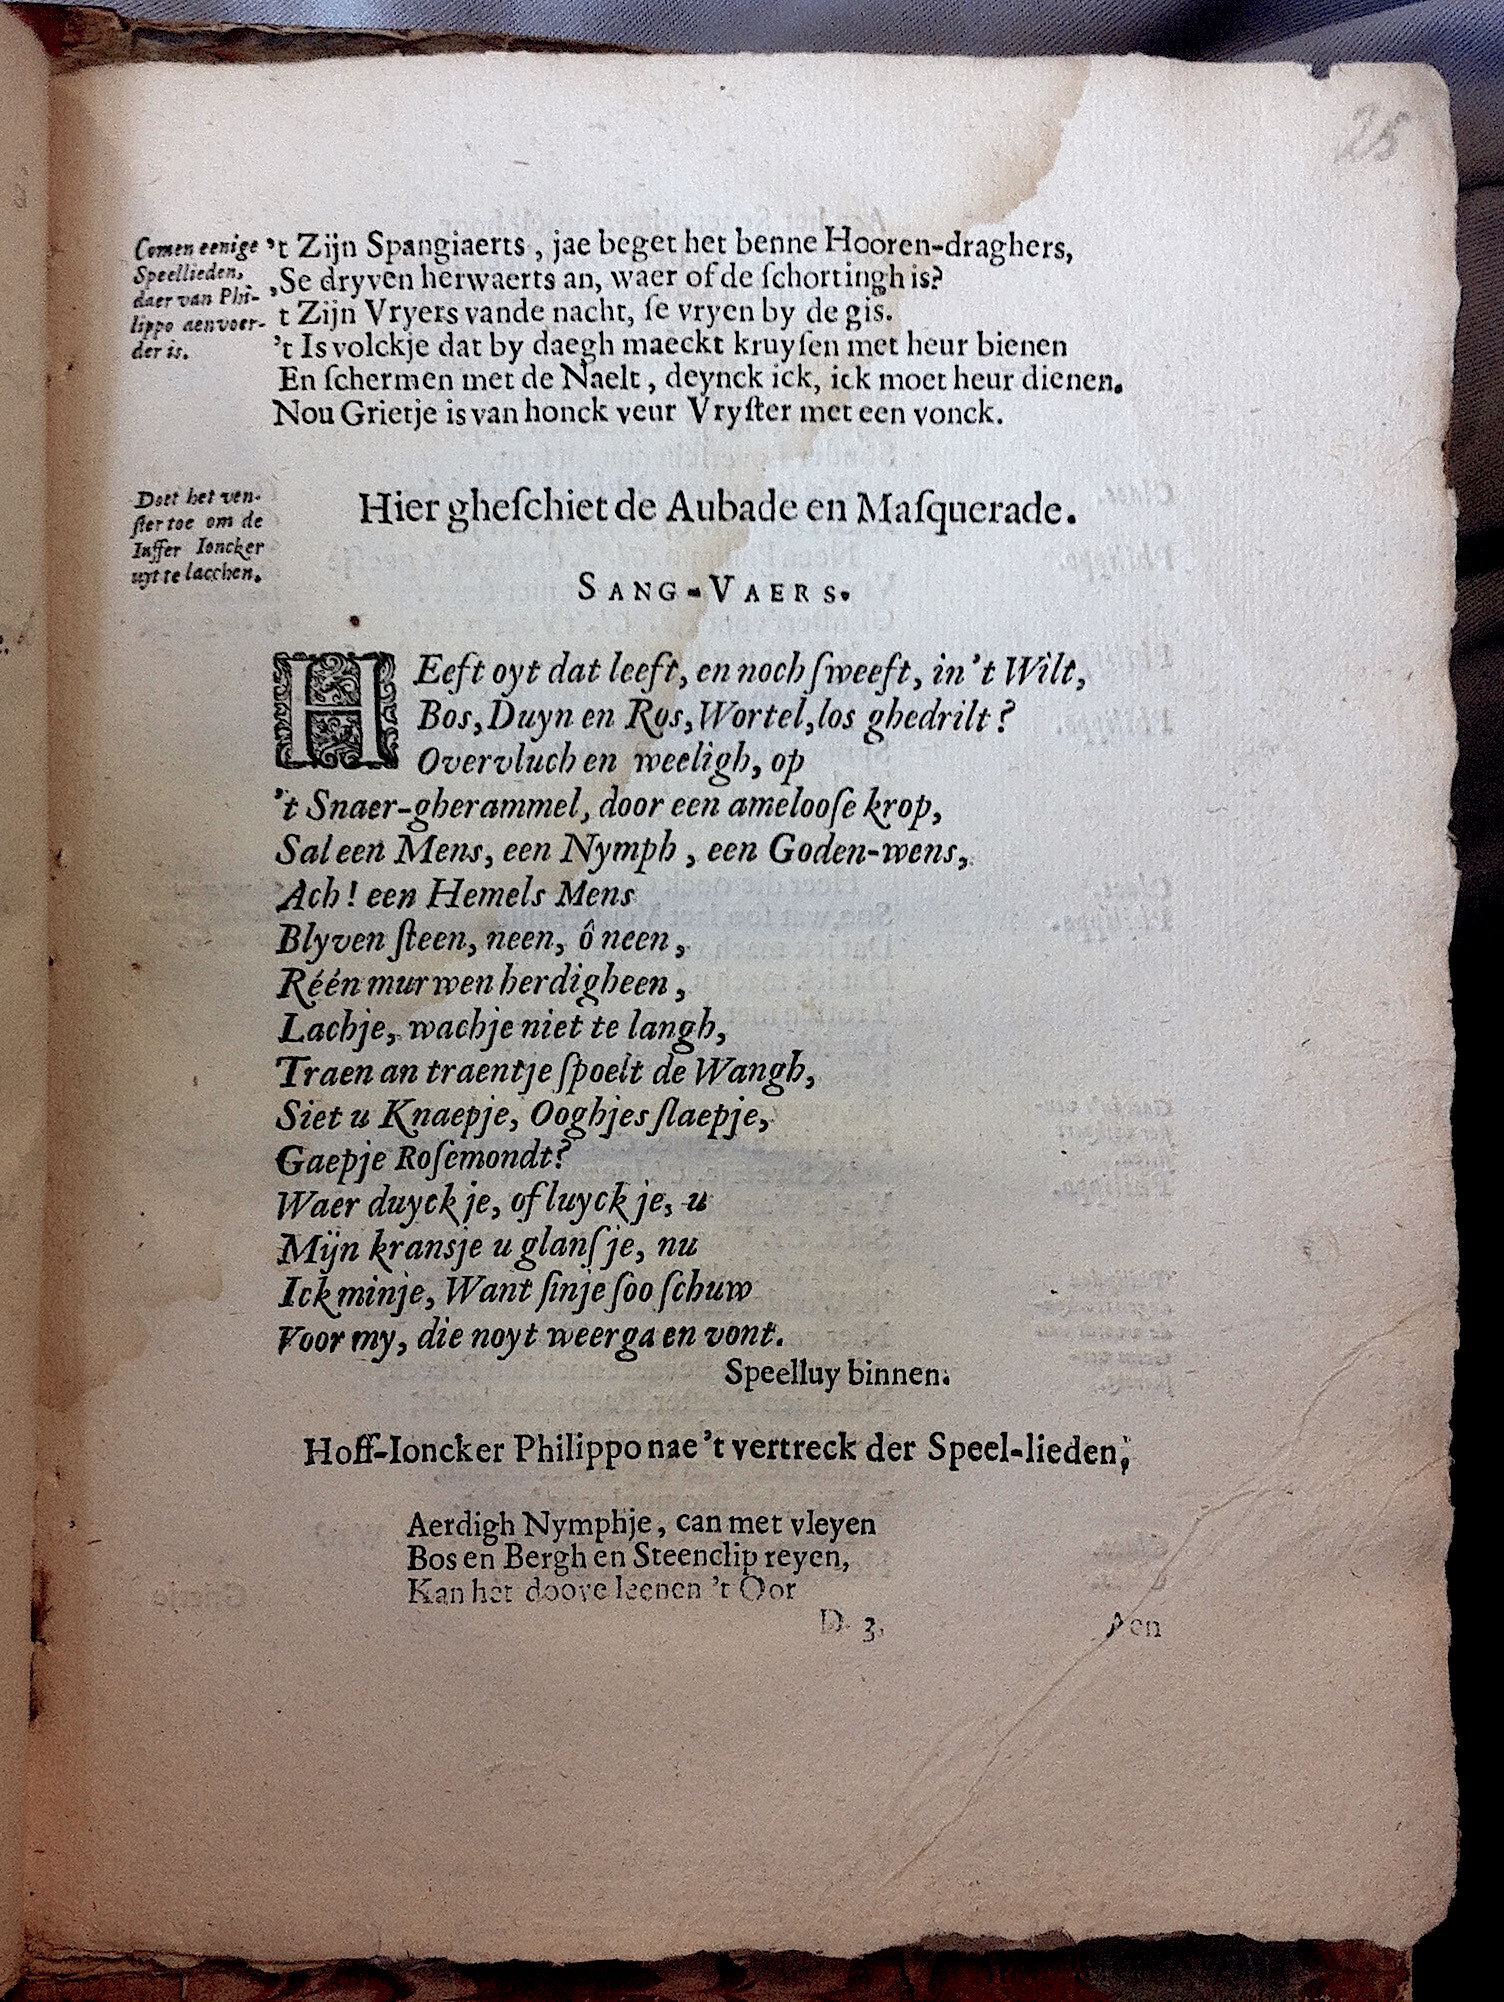 25
Comen eenige
Speellieden,
daer van Phi-
lippo aenvoer-
der is.
't Zijn Spangiaerts, jae beget het benne Hooren-draghers,
,Se dryven herwaerts an, waer of de schortingh is?
't Zijn Vryers vande nacht, se vryen by de gis.
't Is volckje dat by daegh maeckt kruysen met heur bienen
En schermen met de Naelt, deynck ick, ick moet heur dienen.
Nou Grietje is van honck veur Vryster met een vonck.
Doet het ven-
ster toe om de
Iuffer Ioncker
uyt te lacchen.
Hier gheschiet de Aubade en Masquerade.
SANG-VAERS.
HEeft oyt dat leeft, en noch sweeft, in 't Wilt,
Bos, Duyn en Ros, Wortel, los ghedrilt?
Overvluch en weeligh, op
't Snaer-gherammel, door een ameloose krop,
Sal een Mens, een Nymph, een Goden-wens,
Ach! een Hemels Mens
Blyven steen, neen, ô neen,
Réén murwen herdigheen,
Lachje, wachje niet te langh,
Traen an traentje spoelt de Wangh,
Siet u Knaepje, Ooghjes slaepje,
Gaepje Rosemondt?
Waer duyck je, of luyck je, u
Mijn kransje u glansje, nu
Ick minje, Want sinje soo schuw
Voor my, die noyt weerga en vont.
Speelluy binnen.
Hoff-Ioncker Philippo nae 't vertreck der Speel-lieden,
Aerdigh Nymphje, can met vleyen
Bos en Bergh en Steenclip reyen,
Kan het doove leenen 't Oor
D 3. Aen